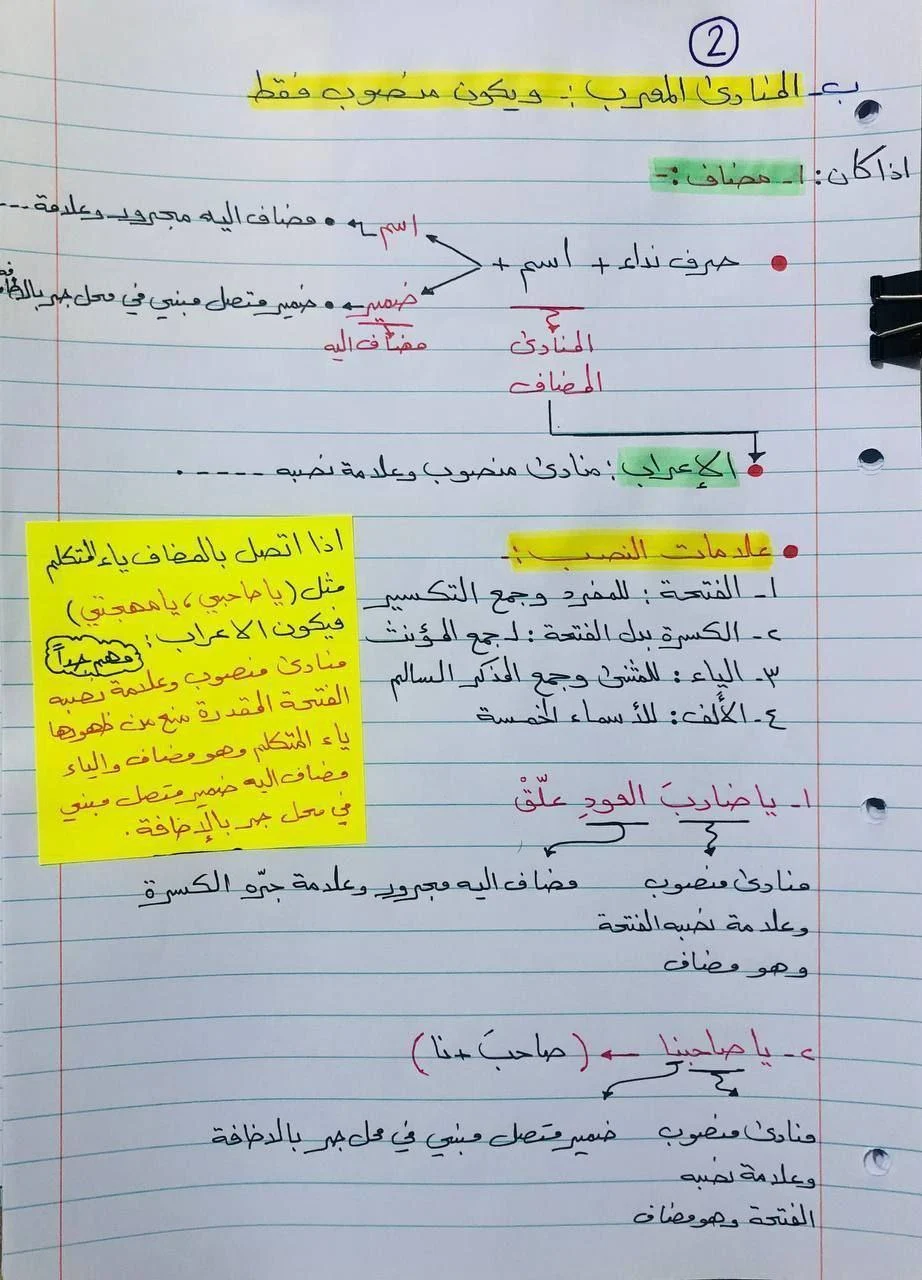 2
ب- المنادى المعرب :- ويكون منصوب فقط
اذا كان : ١- مضاف :-
اسم ← مضاف اليه مجرور وعلامة ...
حرف نداء + اسم +
ضمير ← ضمير متصل مبني في محل جر بالاضافة
المنادى
المضاف
مضاف اليه
الإعراب : منادى منصوب وعلامة نصبه -----.
علامات النصب :-
١- الفتحة : للمفرد وجمع التكسير
٢- الكسرة بدل الفتحة : لجمع المؤنث
٣- الياء : للمثنى وجمع المذكر السالم
٤- الألف : للأسماء الخمسة
اذا اتصل بالمضاف ياء المتكلم
مثل (يا صاحبي ، يا مهجتي)
فيكون الاعراب :
مهم جداً
منادى منصوب وعلامة نصبه
الفتحة المقدرة منع من ظهورها
ياء المتكلم وهو مضاف والياء
مضاف اليه ضمير متصل مبني
في محل جر بالإضافة .
١- يا ضاربَ العودِ علّقْ
منادى منصوب
وعلامة نصبه الفتحة
وهو مضاف
مضاف اليه مجرور وعلامة جرّه الكسرة
٢- يا صاحبنا ← (صاحبَ + نا)
منادى منصوب
وعلامة نصبه
الفتحة وهو مضاف
ضمير متصل مبني في محل جر بالاضافة